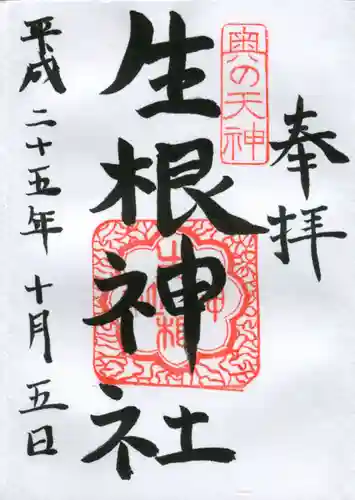 奉拝
奥の天神
生根神社
平成二十五年 十月 五日